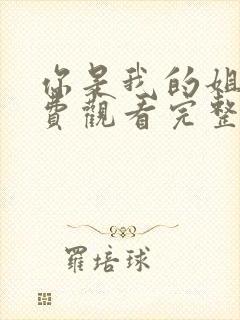 你是我的姐
費觀看完整
羅培球